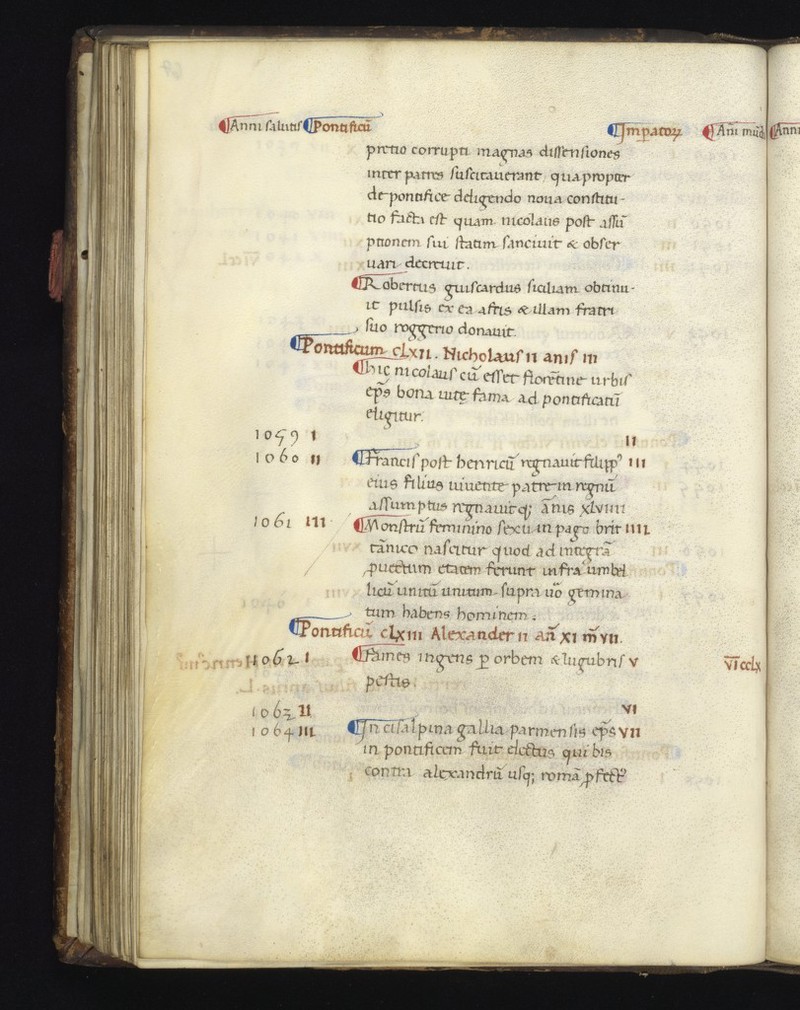 Anni salutis Pontificū Imperatoꝝ Añi mūdi Anni
pretio corrupti magnas dissensiones
inter patres suscitauerant, quapropter
de pontifice deligendo noua constitu-
tio facta est quam nicolaus post assū
ptionem sui statim sanciuit & obser
uari decreuit.
Robertus guiscardus siciliam obtinu-
it pulsis ex ea afris & illam fratri
suo roggerio donauit.
Pontificum clxii. Nicholaus ii anis iii
hic nicolaus cū esset florētine urbis
ep̄s bona uitę fama ad pontificatū
eligitur.
1059 i ii
1060 ii Francis post henricū regnauit filipp᾽ iii
eius filius uiuente patre in regnū
assumptus regnauitq; ānis xlviiii
1061 iii Monstrū feminino sexu in pago brit iiii
tānico nascitur quod ad integrā
ꝓuectum etatem ferunt infra umbil
licū unitū unitum supra uo gemina
tum habens hominem.
Pontificū clxiii Alexander ii añ xi m̄ vii.
1062 i Fames ingens p orbem & lugubris v vīcclx
pestis.
1063 ii vi
1064 iii In cisalpina gallia parmensis ep̄s vii
in pontificem fuit electus qui bis
contra alexandrū usq; romā ꝓfect᾽